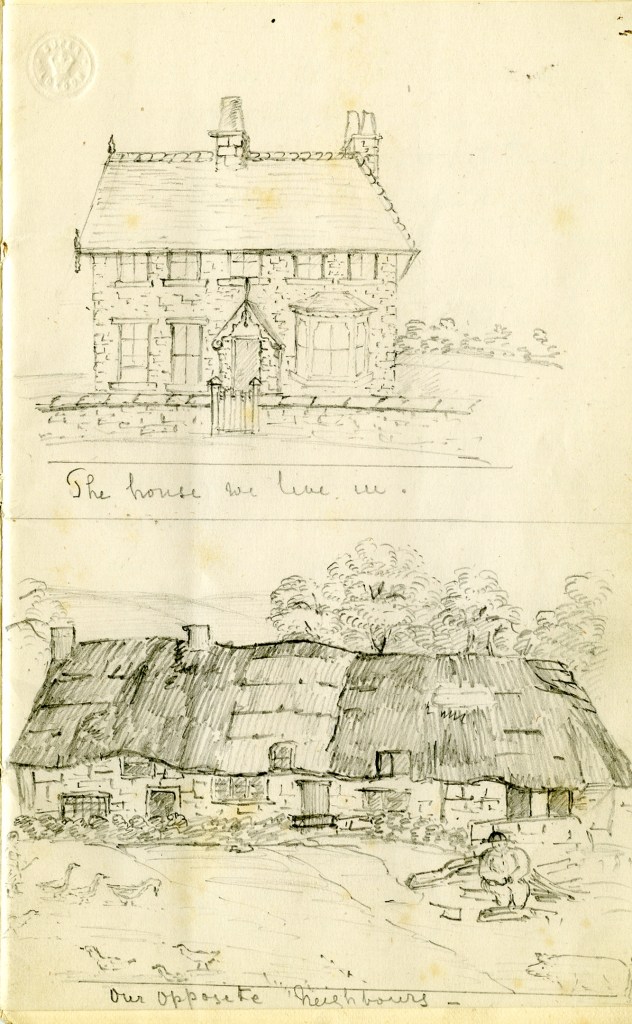 The house we live in.
Our opposite neighbours -